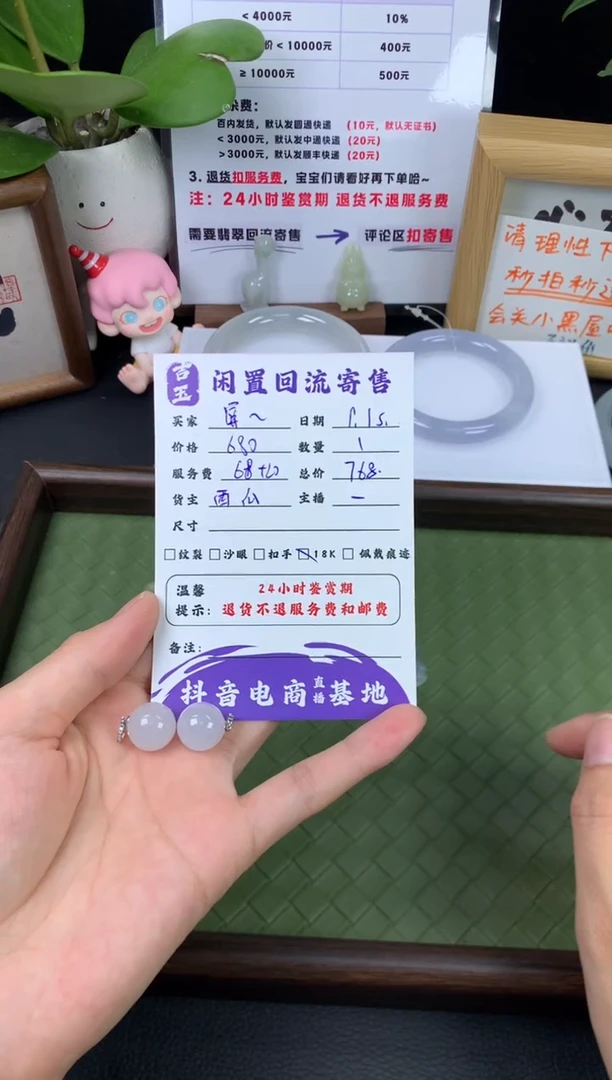 < 4000元 10%
价 < 10000元 400元
≥ 10000元 500元
杂费：
百内发货，默认发圆通快递 （10元，默认无证书）
< 3000元，默认发中通快递 （20元）
>3000元，默认发顺丰快递 （20元）
3. 退货扣服务费，宝宝们请看好再下单哈~
注：24小时鉴赏期 退货不退服务费
需要翡翠回流寄售 → 评论区扣寄售
请理性下
秒拍秒退
会关小黑屋
吉玉 闲置回流寄售
买家 日期 1.15.
价格 680 数量 1
服务费 68+20 总价 768.
货主 西瓜 主播 一
尺寸
纹裂 沙眼 扣手 18K 佩戴痕迹
温馨 24小时鉴赏期
提示：退货不退服务费和邮费
备注：
抖音电商直播基地